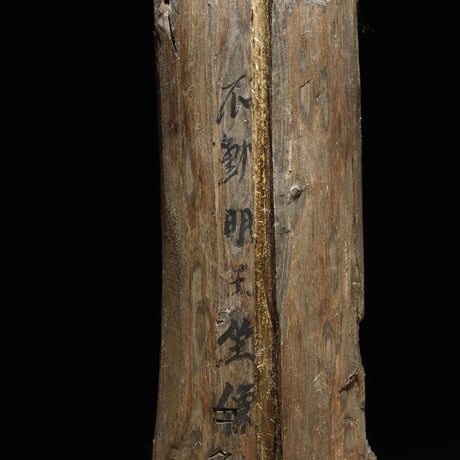 不動明王坐像